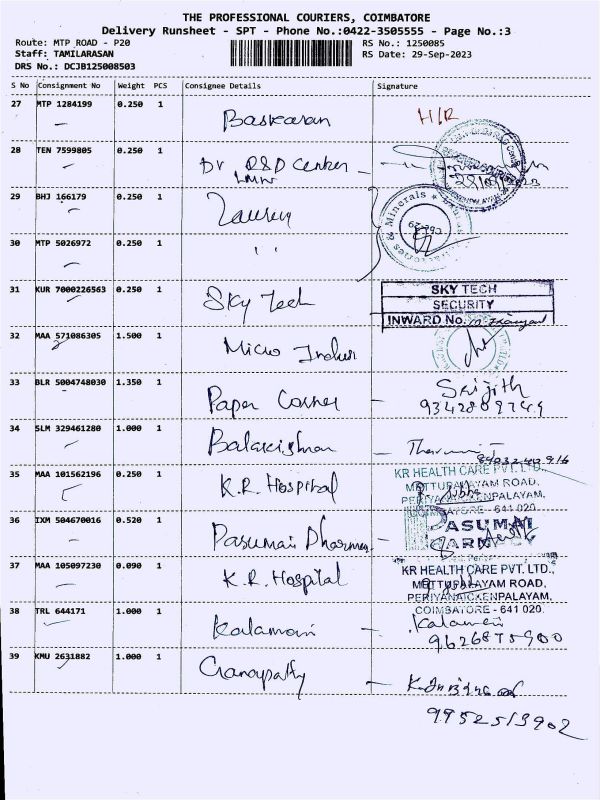 THE PROFESSIONAL COURIERS, COIMBATORE
Delivery Runsheet - SPT - Phone No.:0422-3505555 - Page No.:3
Route: MTP ROAD - P20 RS No.: 1250085
Staff: TAMILARASAN RS Date: 29-Sep-2023
DRS No.: DCJB125008503
S No Consignment No Weight PCS Consignee Details Signature
27 MTP 1284199 0.250 1 Baskaran H/R
28 TEN 7599805 0.250 1 Dr R&D Center -
29 BHJ 166179 0.250 1
& Minerals
30 MTP 5026972 0.250 1 " 
31 KUR 7000226563 0.250 1 Sky Tech
SKY TECH
SECURITY
INWARD No.
32 MAA 571086305 1.500 1 Micro
33 BLR 5004748030 1.350 1 Paper Corner - Srijith
34 SLM 329461280 1.000 1 Balakrishnan -
35 MAA 101562196 0.250 1 K.R. Hospital
KR HEALTH CARE PVT. LTD.,
METTUPALAYAM ROAD,
PERIYANAICKENPALAYAM,
COIMBATORE - 641 020
36 IXM 504670016 0.520 1 Pasumai -
PASUMAI
37 MAA 105097230 0.090 1 K.R. Hospital
KR HEALTH CARE PVT. LTD.,
METTUPALAYAM ROAD,
PERIYANAICKENPALAYAM,
COIMBATORE - 641 020
38 TRL 644171 1.000 1 Kalamani - Kalamani
9626875900
39 KMU 2631882 1.000 1 Ganapathy -
9952513902